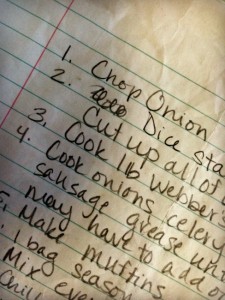 1. Chop Onion
2. Dice
3. Cut up all of
4. Cook 1lb Webber's
Cook onions celery
sausage grease
may have to add
Make muffins
1 bag
Mix